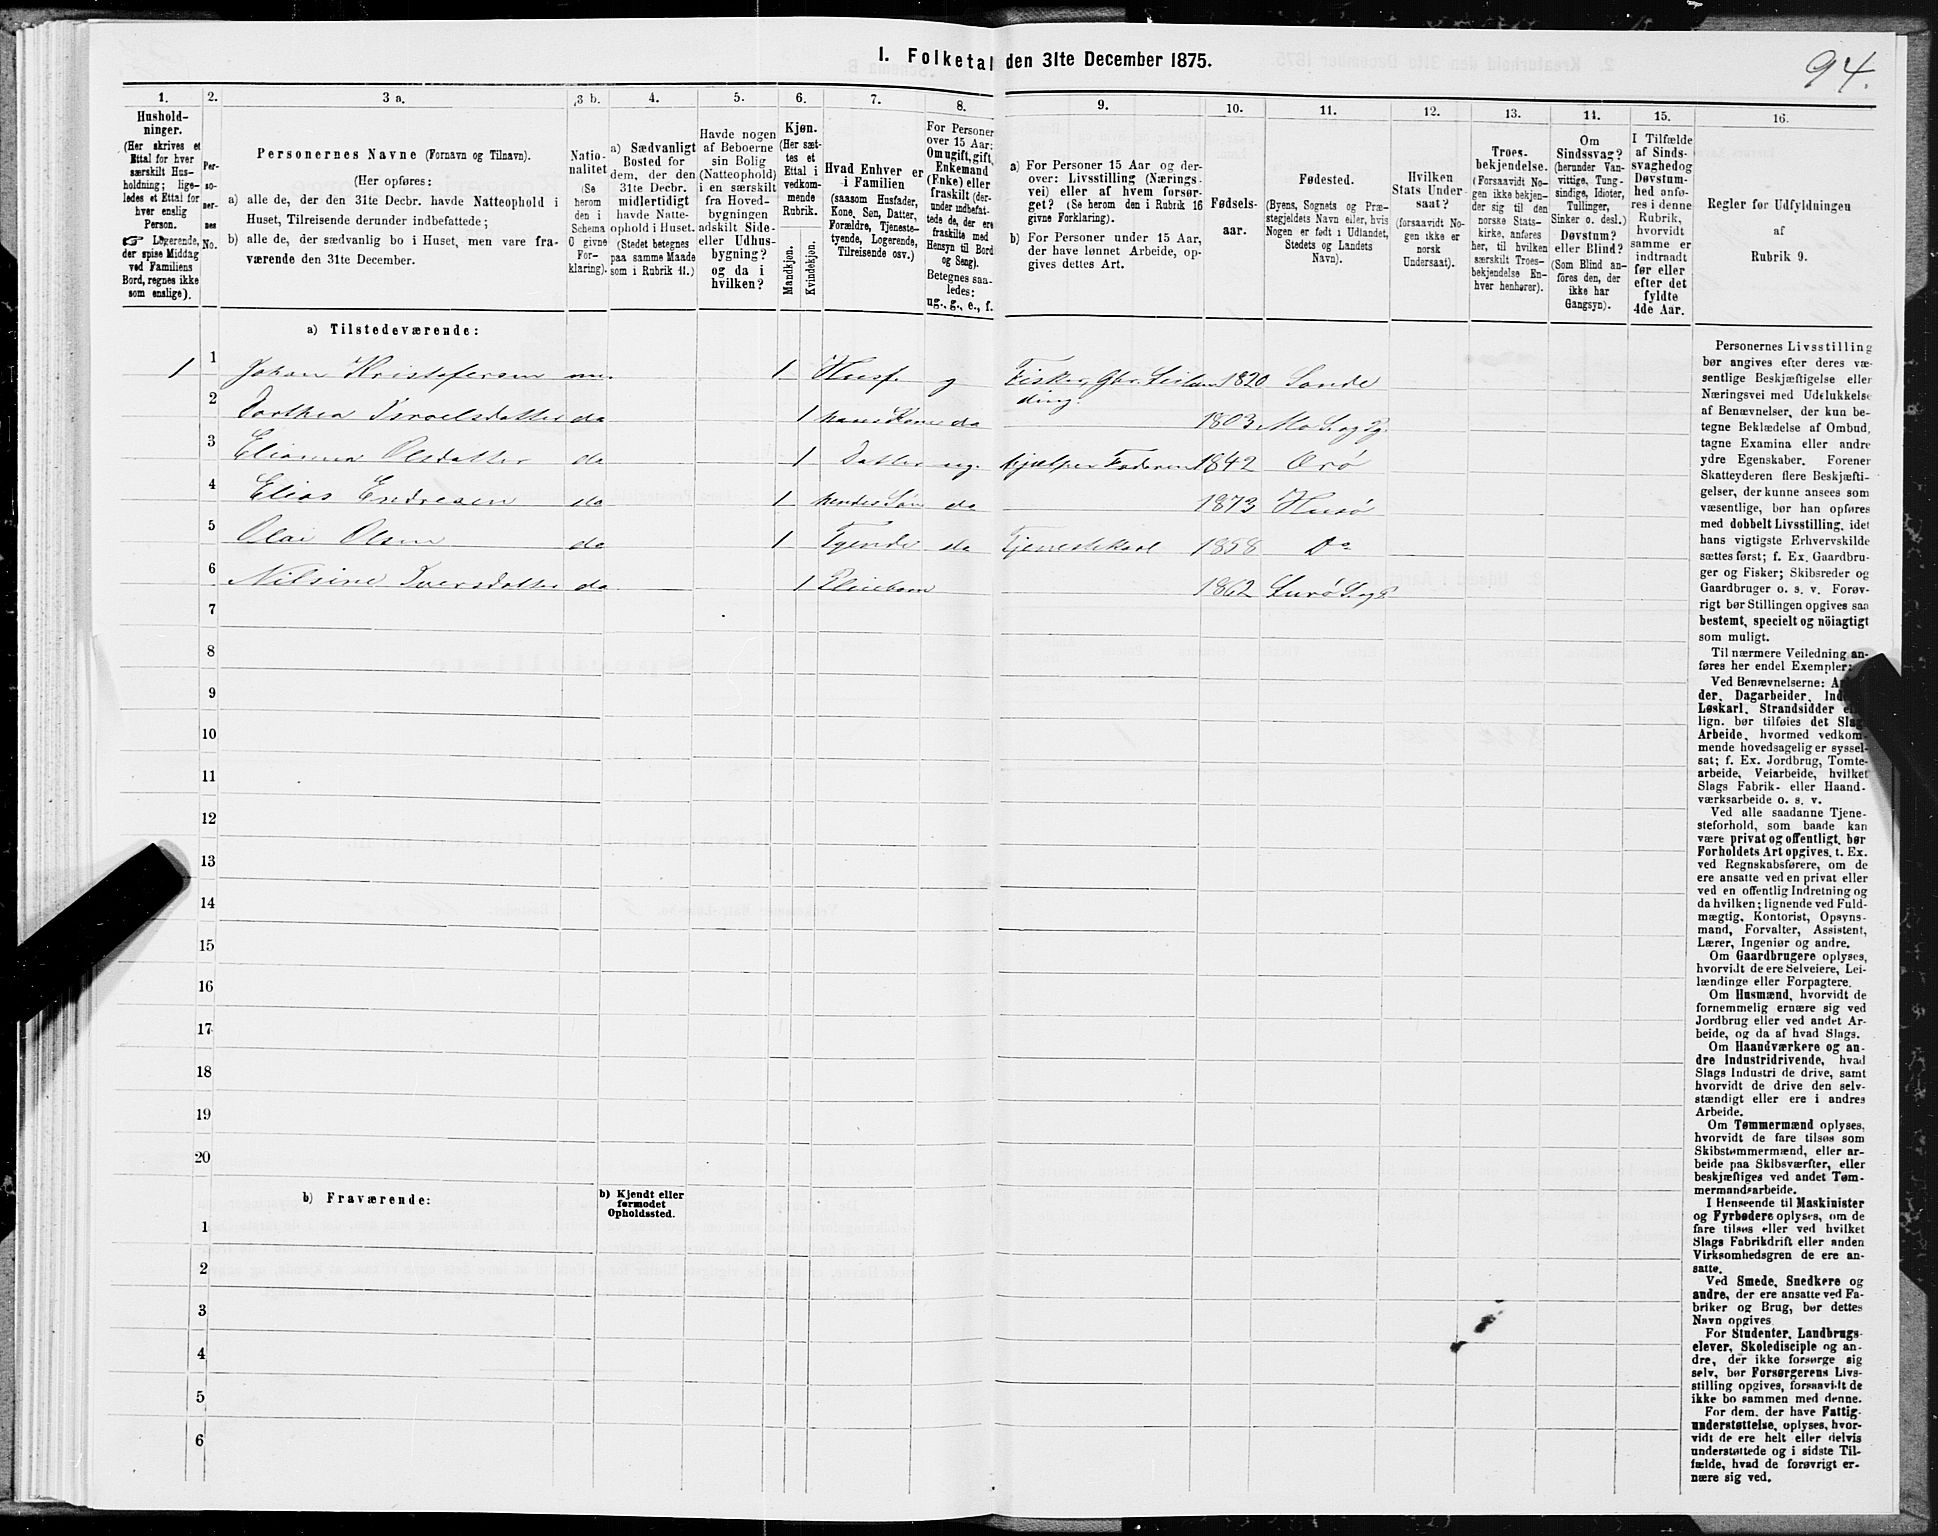 I. Folketal den 31te December 1875.
94.
1.
Hushold-
ninger.
(Her skrives et
Ettal for hver
særskilt Hus-
holdning; lige-
ledes et Ettal for
hver enslig
Person.
☞ Logerende,
der spise Middag
ved Familiens
Bord, regnes ikke
som enslige).
2.
Per-
so-
ner-
nes
No.
3 a.
Personernes Navne (Fornavn og Tilnavn).
(Her opføres:
a) alle de, der den 31te Decbr. havde Natteophold i
Huset, Tilreisende derunder indbefattede;
b) alle de, der sædvanlig bo i Huset, men vare fra-
værende den 31te December.
3 b.
Natio-
nalitet
(Se
herom
den i
Schema
C givne
For-
klaring).
4.
a) Sædvanligt
Bosted for
dem, der den
31te Decbr.
midlertidigt
havde Natte-
ophold i Huset.
(Stedet betegnes
paa samme Maade
som i Rubrik 11.)
5.
Havde nogen
af Beboerne
sin Bolig
(Natteophold)
i en særskilt
fra Hoved-
bygningen
adskilt Side-
eller Udhus-
bygning?
og da i
hvilken?
6.
Kjøn.
(Her sæt-
tes et
Ettal i
vedkom-
mende
Rubrik.
Mandkjøn.
Kvindekjøn.
7.
Hvad Enhver er
i Familien
(saasom Husfader,
Kone, Søn, Datter,
Forældre, Tjeneste-
tyende, Logerende,
Tilreisende osv.)
8.
For Personer
over 15 Aar:
Om ugift, gift,
Enkemand
(Enke) eller
fraskilt (der-
under indbefat-
tede de, der ere
fraskilte med
Hensyn til Bord
og Seng).
Betegnes saa-
ledes:
ug., g., e., f.
9.
a) For Personer 15 Aar og der-
over: Livsstilling (Nærings-
vei) eller af hvem forsør-
get? (Se herom den i Rubrik 16
givne Forklaring).
b) For Personer under 15 Aar,
der have lønnet Arbeide, op-
gives dettes Art.
10.
Fødsels-
aar.
11.
Fødested.
(Byens, Sognets og Præ-
stegjeldets Navn eller, hvis
Nogen er født i Udlandet,
Stedets og Landets
Navn).
12.
Hvilken
Stats Under-
saat?
(forsaavidt No-
gen ikke er
norsk
Undersaat).
13.
Troes-
bekjendelse.
(Forsaavidt No-
gen ikke bekjen-
der sig til den
norske Stats-
kirke, anføres
her, til hvilken
særskilt Troes-
bekjendelse En-
hver henhører).
14.
Om
Sindssvag?
(herunder Van-
vittige, Tung-
sindige, Idioter,
Tullinger,
Sinker o. desl.)
Døvstum?
eller Blind?
(Som Blind an-
føres den, der
ikke har
Gangsyn).
15.
I Tilfælde
af Sinds-
svaghed og
Døvstum-
hed anfø-
res i denne
Rubrik,
hvorvidt
samme er
indtraadt
før eller
efter det
fyldte
4de Aar.
16.
Regler før Udfyldningen
af
Rubrik 9.
a) Tilstedeværende:
1 1 Johan Kristofersen nn. 1 Husf. g Fisker, Gbr. Leilænding. 1820 Sande
2 Dorthea Israelsdatter do 1 hans Kone do 1803 Mo S. og Pg.
3 Elianna Olsdatter do 1 Datter ug. hjælper Faderen 1842 Orö
4 Elias Endresen do 1 hendes Søn do 1873 Husö
5 Olai Olsen do 1 Tyende do Tjenestekarl 1858 Do
6 Nilsine Iversdatter do 1 Pleiebarn 1862 Lurö S. og P.
7
8
9
10
11
12
13
14
15
16
17
18
19
20
b) Fraværende:
b) Kjendt eller
formodet
Opholdssted.
1
2
3
4
5
6
Personernes Livsstilling
bør angives efter deres væ-
sentlige Beskjæftigelse eller
Næringsvei med Udelukkelse
af Benævnelser, der kun be-
tegne Beklædelse af Ombud,
tagne Examina eller andre
ydre Egenskaber. Forener
Skatteyderen flere Beskjæfti-
gelser, der kunne ansees som
væsentlige, bør han opføres
med dobbelt Livsstilling, idet
hans vigtigste Erhvervskilde
sættes først; f. Ex. Gaardbru-
ger og Fisker; Skibsreder og
Gaardbruger o. s. v. Forøv-
rigt bør Stillingen opgives saa
bestemt, specielt og nöiagtigt
som muligt.
Til nærmere Veiledning an-
føres her endel Exempler:
Ved Benævnelserne:
der, Dagarbeider,
Løskarl, Strandsidder
lign. bør tilføies det Slags
Arbeide, hvormed vedkom-
mende hovedsagelig er syssel-
sat; f. Ex. Jordbrug, Tomte-
arbeide, Veiarbeide, hvilket
Slags Fabrik- eller Haand-
værksarbeide o. s. v.
Ved alle saadanne Tjene-
steforhold, som baade kan
være privat og offentligt, bør
Forholdets Art opgives, t. Ex.
ved Regnskabsførere, om de
ere ansatte ved en privat eller
ved en offentlig Indretning og
da hvilken; lignende ved Fuld-
mægtig, Kontorist, Opsyns-
mand, Forvalter, Assistent,
Lærer, Ingeniør og andre.
Om Gaardbrugere oplyses,
hvorvidt de ere Selveiere, Lei-
lændinge eller Forpagtere.
Om Husmænd, hvorvidt de
fornemmelig ernære sig ved
Jordbrug eller ved andet Ar-
beide, og da af hvad Slags.
Om Haandværkere og an-
dre Industridrivende, hvad
Slags Industri de drive, samt
hvorvidt de drive den selv-
stændigt eller ere i andres
Arbeide.
Om Tømmermænd oplyses,
hvorvidt de fare tilsøs som
Skibstømmermænd, eller ar-
beide paa Skibsværfter, eller
beskjæftiges ved andet Tøm-
mermandsarbeide.
I Henseende til Maskinister
og Fyrbødere oplyses, om de
fare tilsøs eller ved hvilket
Slags Fabrikdrift eller anden
Virksomhedsgren de ere an-
satte.
Ved Smede, Snedkere og
andre, der ere ansatte ved Fa-
briker og Brug, bør dettes
Navn opgives.
For Studenter, Landbrugs-
elever, Skoledisciple og an-
dre, der ikke forsørge sig
selv, bør Forsørgerens Livs-
stilling opgives, forsaavidt de
ikke bo sammen med denne.
For dem, der have Fattig-
understøttelse, oplyses, hvor-
vidt de ere helt eller delvis
understøttede og i sidste Til-
fælde, hvad de forøvrigt er-
nære sig ved.